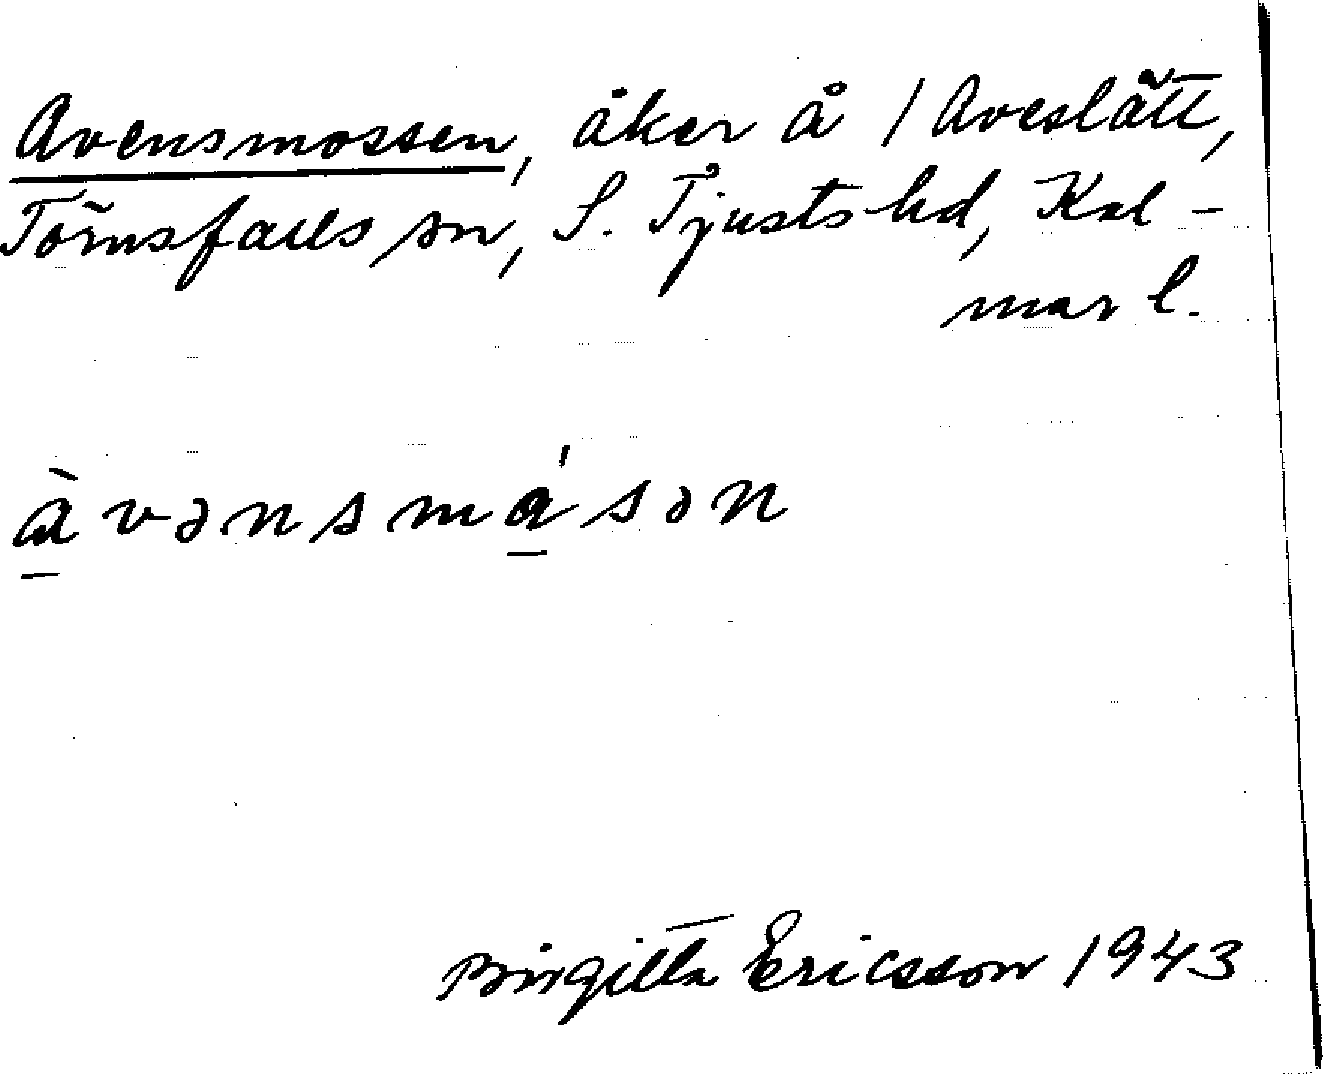 Avensmossen, åker å 1 Aveslätt,
Törnsfalls sn, S. Tjusts hd, Kal-
mar l.
àvənsmásən
Birgitta Ericsson 1943